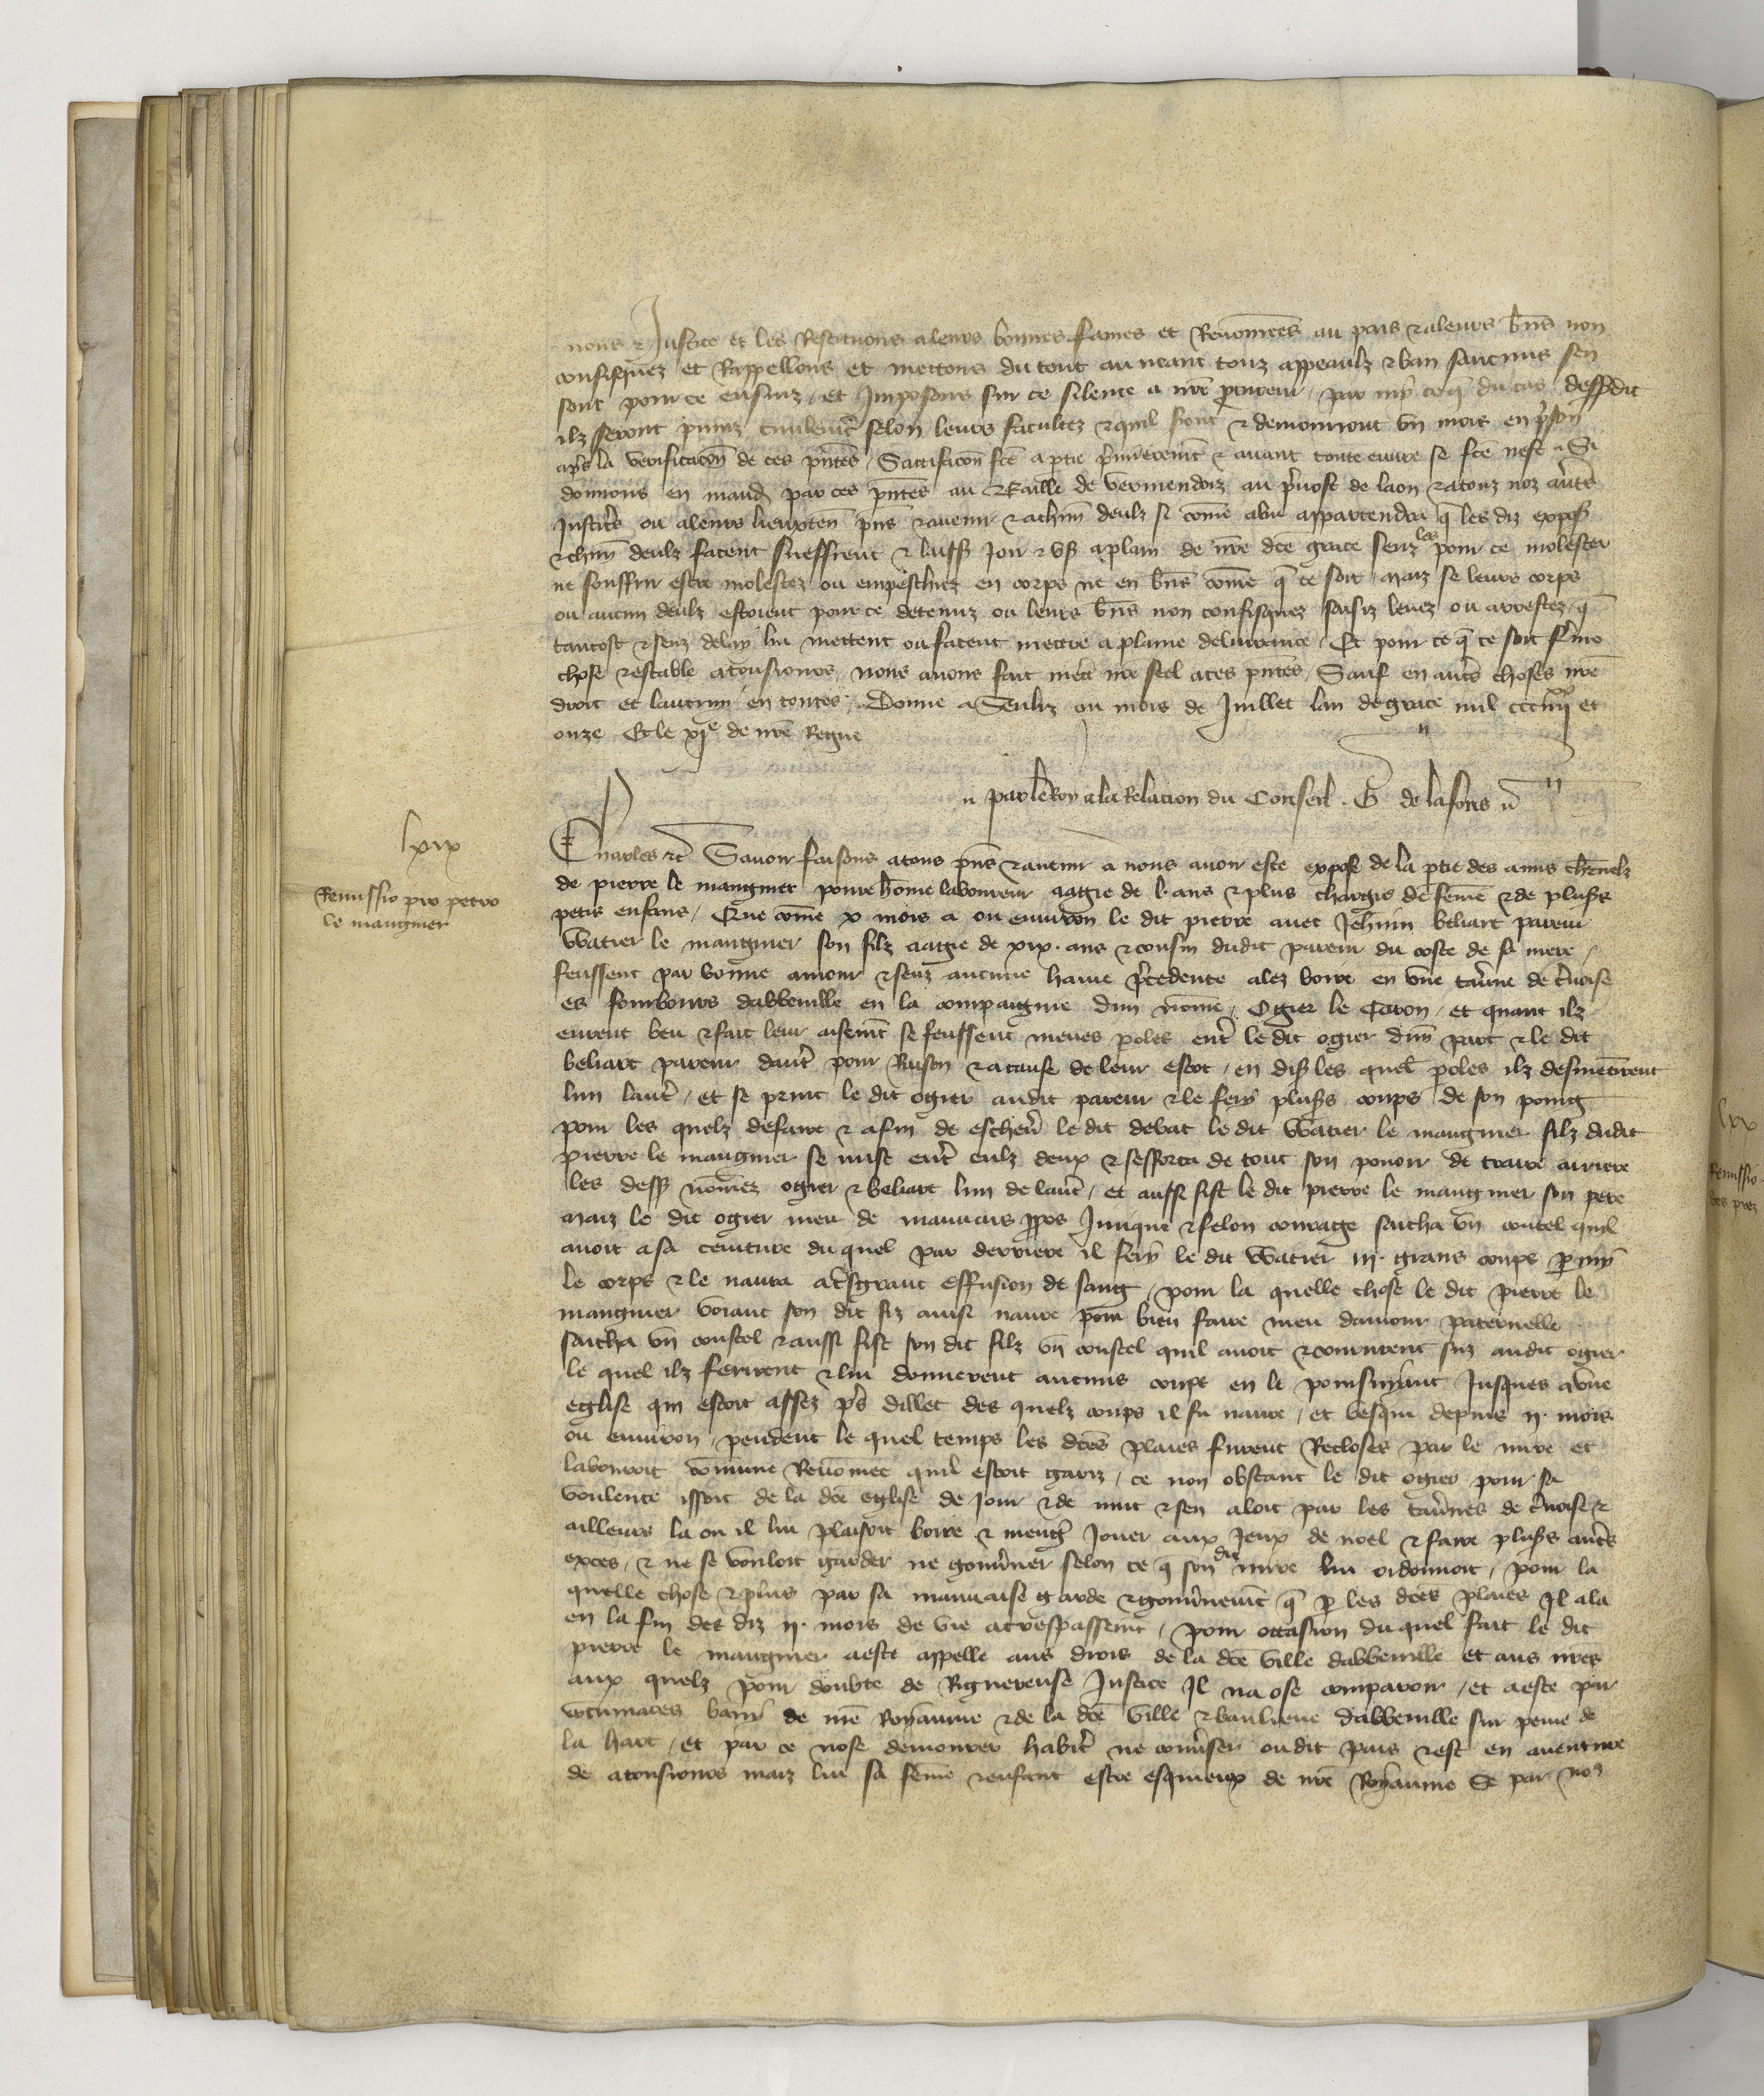 nous & Justice et les Restituons a leurs bonnes fames et Renomees au pais & a leurs bns non
confisquez et Rappellons et mettons du tout au neant touz appeaulz & ban saucuns sen
sont pour ce ensuiz, et Imposons sur ce silence a nre procureur, par my ce q du cas dessusdit
ilz seront puniz civilemt selon leurs facultez & quil & demourront un mois en prison
aps la verificacon de ces pntes, Satisfacon fce a ptie premieremt & avant toute euvre se fce nest Si
donnons en mand par ces pntes au Bailli de vermendoiz au prevost de laon & a touz noz autrs
Justicrs ou a leurs lieuxten pns & avenir & a chm deulz si come a lui appartendra q les diz expos
& chm deulz facent sueffrent & laissent Joir & user a plain de nre dce grace senz les pour ce molester
ne souffrir estre molestez ou empeschiez en corps ne en bns come q ce soit, maiz se leurs corps
ou aucun deulz estoient pour ce detenuz ou leurs bns non confisquez saisiz levez ou arrestez, q
tantost & senz delay lui mettent ou facent mettre a plaine delivrance. Et pour ce q ce soit ferme
chose & estable a tousiours, nous avons fait mett nre seel a ces pntes, Sauf en autrs choses nre
droit et lautruy en toutes. Donne a Senliz ou mois de Juillet lan de grace mil ccciiijxx et
onze Et le xje de nre Regne
par le Roy a la Relacion du Conseil. G de lafons
lxix
Remissio pro petro
le maugnier
Charles &c Savoir faisons a tous pns & avenir a nous avoir este expose de la ptie des amis charnelz
de pierre le maugnier povre home laboureur aagie de l. ans & plus chargie de feme & de plusrs
petis enfans, Que come x mois a ou environ le dit pierre avec Jehnin beliart pareur
Watier le maugnier son filz aagie de xix. ans & cousin dudit pareur du coste de sa mere,
feussent par bonne amour & senz aucune haine precedente alez boire en une taverne de cervoise
es forsbours dabbeville en la compaignie dun nome, Ogier le Caron, et quant ilz
eurent beu & fait leur aisemt se feussent meues poles entr le dit ogier dune part & le dit
beliart pareur dautr pour Raison & a cause de leur escot, en dis les quel poles ilz desmentirent
lun lautr, et se print le dit ogier audit pareur & le fery plusrs coups de son poing
pour les quelz desaire & afin de eschever le dit debat le dit Watier le maugnier filz dudit
pierre le maugnier se mist entr eulz deux & sefforca de tout son povoir de traire arriere
les dess nomez ogier & beliart lun de lautr, et aussi fist le dit pierre le maugnier son pere
maiz le dit ogier meu de mauvais ppos Inique & felon courage sacha un coutel quil
avoit a sa ceinture du quel par derriere il fery le dit Watier iij. grans coups p my
le corps & le navra a tresgrant effusion de sang, pour la quelle chose le dit pierre le
maugnier voiant son dit filz ainsi navre pour bien faire meu damour paternelle
sacha un coustel & aussi fist son dit filz un coustel quil avoit & coururent suz audit ogier
le quel ilz ferirent & lui donnerent aucuns coups en le poursuyvant Jusques a une
eglise qui estoit assez pres dillec des quelz coups il fu navre, et vesqui depuis ij. mois
ou environ, pendent le quel temps les dces plaies furent Recloses par le mire et
labouroit comune Renomee quil estoit gariz, ce non obstant le dit ogier pour sa
voulente issoit de la dce eglise de Jour & de nuit & sen aloit par les tavernes de cervoise &
ailleurs la ou il lui plaisoit boire & mengr Jouer aux Jeux de noel & faire plusrs autrs
exces, & ne se vouloit garder ne gouverner selon ce q son dit mire lui ordonnoit, pour la
quelle chose & plus par sa mauvaise garde & gouvernemt q p les dces plaies Il ala
en la fin des diz ij. mois de vie a trespassemt, pour occasion du quel fait le dit
pierre le maugnier a este appelle aus drois de la dce ville dabbeville et aus nres
aux quelz pour doubte de Riguereuse Justice Il na ose comparoir, et a este par
contumaces bany de nre Royaume & de la dce ville & banlieue dabbeville sur peine de
la hart, et par ce nose demourer habitr ne converser oudit pais & est en aventure
de a tousiours maiz lui sa feme & enfant estre esquieux de nre Royaume Se par nos
lxx
Remissio